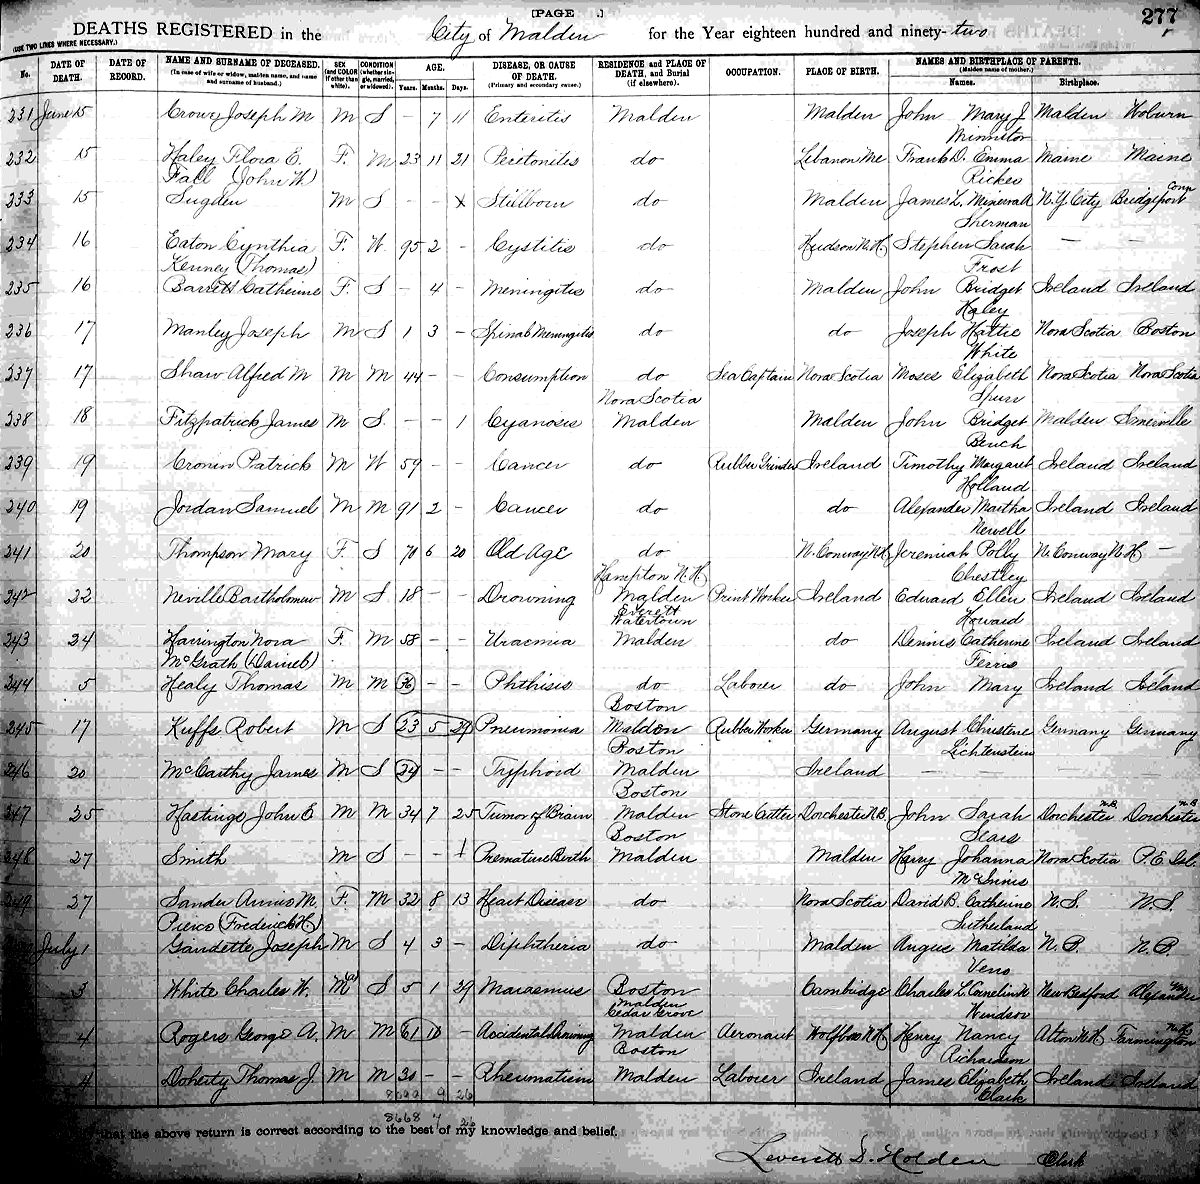 [PAGE .] 277
DEATHS REGISTERED in the City of Malden for the Year eighteen hundred and ninety-two
(USE TWO LINES WHERE NECESSARY.)
No. DATE OF DEATH. DATE OF RECORD. NAME AND SURNAME OF DECEASED. (In case of wife or widow, maiden name, and name and surname of husband.) SEX (and COLOR if other than white). CONDITION (whether single, married, or widowed). AGE. Years. Months. Days. DISEASE, OR CAUSE OF DEATH. (Primary and secondary cause.) RESIDENCE and PLACE OF DEATH, and Burial (if elsewhere). OCCUPATION. PLACE OF BIRTH. NAMES AND BIRTHPLACE OF PARENTS. (Maiden name of mother.) Names. Birthplace.
231 June 15 Crowe Joseph M M S - 7 11 Enteritis Malden Malden John Mary J Malden Woburn
Minnitor
232 15 Haley Flora E. F. M 23 11 21 Peritonitis do Lebanon Me Frank D. Emma Maine Maine
Fall (John W.) Ricker
233 15 Sugden M S - - X Stillborn do Malden James L. Minerva A N.Y. City Bridgeport Conn
Sherman
234 16 Eaton Cynthia F. W. 95 2 - Cystitis do Hudson N.H. Stephen Sarah - -
Kenney (Thomas) Frost
235 16 Barrett Catherine F. S - 4 - Meningitis do Malden John Bridget Ireland Ireland
Haley
236 17 Manley Joseph M S 1 3 - Spinal Meningitis do do Joseph Hattie Nova Scotia Boston
White
237 17 Shaw Alfred M M M 44 - - Consumption do Sea Captain Nova Scotia Moses Elizabeth Nova Scotia Nova Scotia
Nova Scotia Spurr
238 18 Fitzpatrick James M S. - - 1 Cyanosis Malden Malden John Bridget Malden Somerville
239 19 Cronin Patrick M W 59 - - Cancer do Rubber Grinder Ireland Timothy Margaret Ireland Ireland
Holland
240 19 Jordan Samuel M M 91 2 - Cancer do do Alexander Martha Ireland Ireland
Newell
241 20 Thompson Mary F. S 70 6 20 Old Age do N. Conway N.H. Jeremiah Polly N. Conway N.H. -
Hampton N.H. Chestley
242 22 Neville Bartholomew M S 18 - - Drowning Malden Print Worker Ireland Edward Ellen Ireland Ireland
Everett
Watertown Howard
243 24 Harrington Nora F. M 58 - - Uraemia Malden do Dennis Catherine Ireland Ireland
McGrath (Daniel) Ferris
244 5 Healy Thomas M M 36 - - Phthisis do Laborer do John Mary Ireland Ireland
Boston
245 17 Kuffs Robert M S 23 5 29 Pneumonia Malden Rubber Worker Germany August Christine Germany Germany
Boston Lichtenstein
246 20 McCarthy James M S 24 - - Typhoid Malden Ireland - - - -
Boston
247 25 Hastings John E M M 34 7 25 Tumor of Brain Malden Stone Cutter Dorchester N.B. John Sarah Dorchester N.B. Dorchester N.B.
Boston Sears
248 27 Smith M S - - Premature Birth Malden Malden Harry Johanna Nova Scotia P.E. Isl.
McInnis
249 27 Sander Annie M. F. M 32 8 13 Heart Disease do Nova Scotia David B. Catherine N.S. N.S.
Pierce (Frederick H.) Sutherland
July 1 Gaudette Joseph M S 4 3 - Diphtheria do Malden Angus Matilda N.B. N.B.
Veno
3 White Charles W. M S 5 1 29 Marasmus Boston Cambridge Charles L. Cornelia New Bedford Alexandria
Malden
Cedar Grove Windsor
4 Rogers George A. M M 61 10 - Accidental Drowning Malden Aeronaut Wolfboro N.H. Henry Nancy Alton N.H. Farmington N.H.
Boston Richardson
4 Doherty Thomas J. M M 30 - - Rheumatism Malden Laborer Ireland James Elizabeth Ireland Ireland
Clark
8668 4 26
that the above return is correct according to the best of my knowledge and belief.
Leverett D. Holden Clerk